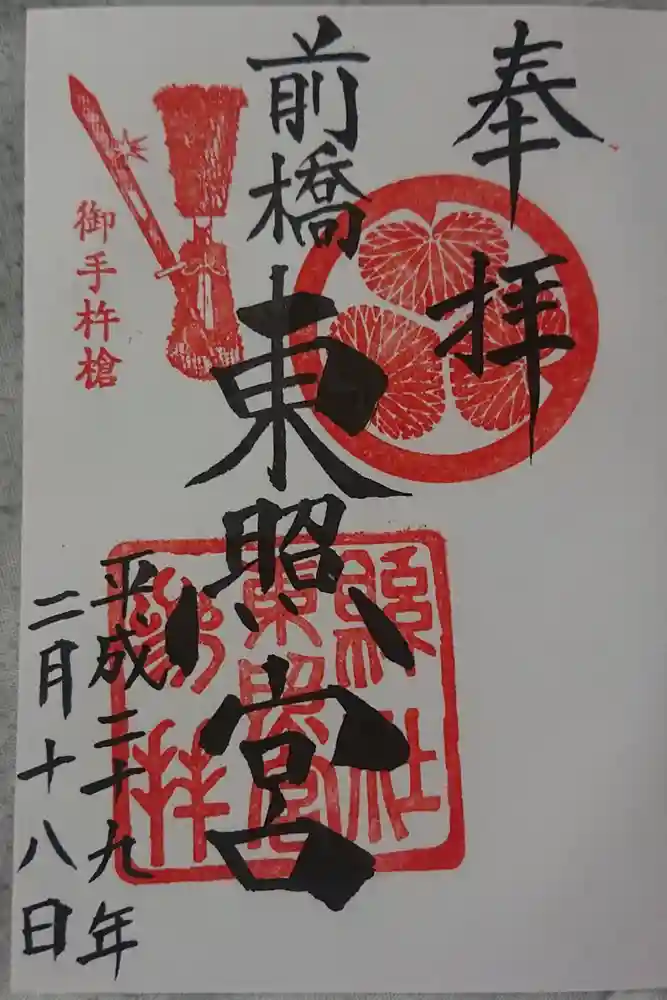 奉拝
前橋東照宮
御手杵槍
縣社
東照宮
平成二十九年
二月十八日